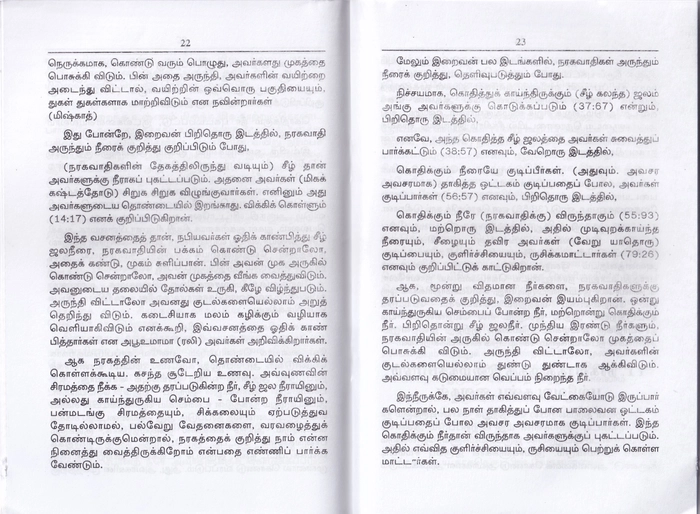 22
நெருக்கமாக, கொண்டு வரும் பொழுது, அவர்களது முகத்தை
பொசுக்கி விடும். பின் அதை அருந்தி, அவர்களின் வயிற்றை
அடைந்து விட்டால், வயிற்றின் ஒவ்வொரு பகுதியையும்,
துகள் துகள்களாக மாற்றிவிடும் என நவின்றார்கள்
(மிஷ்காத்)
இது போன்றே, இறைவன் பிறிதொரு இடத்தில், நரகவாதி
அருந்தும் நீரைக் குறித்து குறிப்பிடும் போது,
(நரகவாதிகளின் தேகத்திலிருந்து வடியும்) சீழ் தான்
அவர்களுக்கு நீராகப் புகட்டப்படும். அதனை அவர்கள் (மிகக்
கஷ்டத்தோடு) சிறுக சிறுக விழுங்குவார்கள். எனினும் அது
அவர்களுடைய தொண்டையில் இறங்காது. விக்கிக் கொள்ளும்
(14:17) எனக் குறிப்பிடுகிறான்.
இந்த வசனத்தைத் தான், நபியவர்கள் ஓதிக் காண்பித்து சீழ்
ஜலநீரை, நரகவாதியின் பக்கம் கொண்டு சென்றாலோ,
அதைக் கண்டு, முகம் சுளிப்பான். பின் அவன் முக அருகில்
கொண்டு சென்றாலோ, அவன் முகத்தை வீங்க வைத்துவிடும்.
அவனுடைய தலையில் தோல்கள் உருகி, கீழே விழ்ந்துபடும்.
அருந்தி விட்டாலோ அவனது குடல்களையெல்லாம் அறுத்
தெறிந்து விடும். கடைசியாக மலம் கழிக்கும் வழியாக
வெளியாகிவிடும் எனக்கூறி, இவ்வசனத்தை ஓதிக் காண்
பித்தார்கள் என அபூஉமாமா (ரலி) அவர்கள் அறிவிக்கிறார்கள்.
ஆக நரகத்தின் உணவோ, தொண்டையில் விக்கிக்
கொள்ளக்கூடிய, கசந்த சூடேறிய உணவு. அவ்வுணவின்
சிரமத்தை நீக்க - அதற்கு தரப்படுகின்ற நீர், சீழ் ஜல நீராயினும்,
அல்லது காய்ந்துருகிய செம்பை - போன்ற நீராயினும்,
பன்மடங்கு சிரமத்தையும், சிக்கலையும் ஏற்படுத்துவ
தோடில்லாமல், பல்வேறு வேதனைகளை, வரவழைத்துக்
கொண்டிருக்குமென்றால், நரகத்தைக் குறித்து நாம் என்ன
நினைத்து வைத்திருக்கிறோம் என்பதை எண்ணிப் பார்க்க
வேண்டும்.
23
மேலும் இறைவன் பல இடங்களில், நரகவாதிகள் அருந்தும்
நீரைக் குறித்து, தெளிவுபடுத்தும் போது.
நிச்சயமாக, கொதித்துக் காய்ந்திருக்கும் (சீழ் கலந்த) ஜலம்
அங்கு அவர்களுக்கு கொடுக்கப்படும் (37:67) என்றும்,
பிறிதொரு இடத்தில்,
எனவே, அந்த கொதித்த சீழ் ஜலத்தை அவர்கள் சுவைத்துப்
பார்க்கட்டும் (38:57) எனவும், வேறொரு இடத்தில்,
கொதிக்கும் நீரையே குடிப்பீர்கள். (அதுவும். அவசர
அவசரமாக) தாகித்த ஒட்டகம் குடிப்பதைப் போல, அவர்கள்
குடிப்பார்கள் (56:57) எனவும், பிறிதொரு இடத்தில்,
கொதிக்கும் நீரே (நரகவாதிக்கு) விருந்தாகும் (55:93)
எனவும், மற்றொரு இடத்தில், அதில் முடிவுறக்காய்ந்த
நீரையும், சீழையும் தவிர அவர்கள் (வேறு யாதொரு)
குடிப்பையும், குளிர்ச்சியையும், ருசிக்கமாட்டார்கள் (79:26)
எனவும் குறிப்பிட்டுக் காட்டுகிறான்.
ஆக, மூன்று விதமான நீர்களை, நரகவாதிகளுக்கு
தரப்படுவதைக் குறித்து, இறைவன் இயம்புகிறான். ஒன்று
காய்ந்துருகிய செம்பைப் போன்ற நீர், மற்றொன்று கொதிக்கும்
நீர். பிறிதொன்று சீழ் ஜலநீர். முந்திய இரண்டு நீர்களும்,
நரகவாதியின் அருகில் கொண்டு சென்றாலோ முகத்தைப்
பொசுக்கி விடும். அருந்தி விட்டாலோ, அவர்களின்
குடல்களையெல்லாம் துண்டு துண்டாக ஆக்கிவிடும்.
அவ்வளவு கடுமையான வெப்பம் நிறைந்த நீர்.
இந்நீருக்கே, அவர்கள் எவ்வளவு வேட்கையோடு இருப்பார்
களென்றால், பல நாள் தாகித்துப் போன பாலைவன ஒட்டகம்
குடிப்பதைப் போல அவசர அவசரமாக குடிப்பார்கள். இந்த
கொதிக்கும் நீர்தான் விருந்தாக அவர்களுக்குப் புகட்டப்படும்.
அதில் எவ்வித குளிர்ச்சியையும், ருசியையும் பெற்றுக் கொள்ள
மாட்டார்கள்.